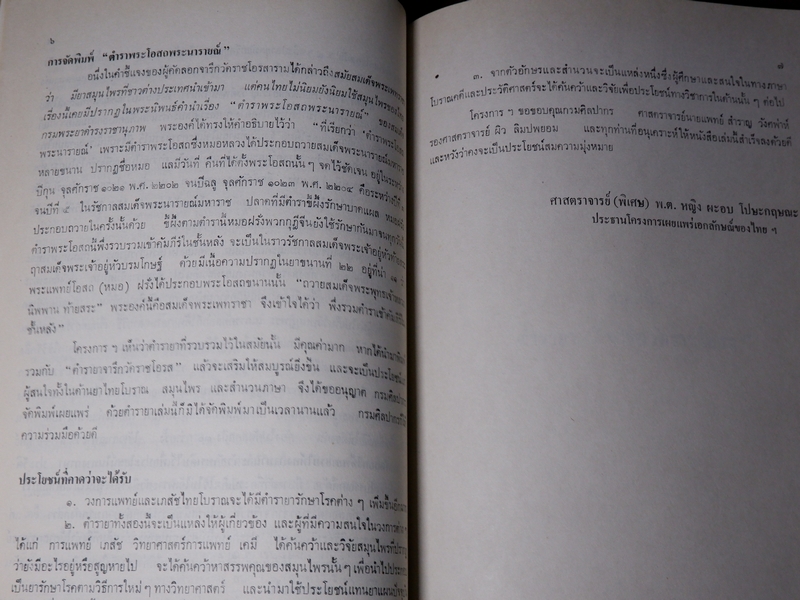 ๖
การจัดพิมพ์ "ตำราพระโอสถพระนารายณ์"
อนึ่งในคำชี้แจงของผู้คัดลอกจารึกวัดราชโอรสารามได้กล่าวถึงสมัยสมเด็จพระเพทราชา
ว่า มียาสมุนไพรที่ชาวต่างประเทศนำเข้ามา แต่คนไทยไม่นิยมยังนิยมใช้สมุนไพรของ
เรื่องนี้เคยมีปรากฏในพระนิพนธ์คำนำเรื่อง "ตำราพระโอสถพระนารายณ์" ของสมเด็จ
กรมพระยาดำรงราชานุภาพ พระองค์ได้ทรงให้คำอธิบายไว้ว่า "ที่เรียกว่า 'ตำราพระโอสถ
พระนารายณ์' เพราะมีตำราพระโอสถซึ่งหมอหลวงได้ประกอบถวายสมเด็จพระนารายณ์มหาราช
หลายขนาน ปรากฏชื่อหมอ แลมีวันที่ คืนที่ได้ตั้งพระโอสถนั้น ๆ จดไว้ชัดเจน อยู่ในระหว่าง
ปีกุน จุลศักราช ๑๐๒๑ พ.ศ. ๒๒๐๒ จนปีฉลู จุลศักราช ๑๐๒๓ พ.ศ. ๒๒๐๔ คือระหว่างปีที่
จนปีที่ ๕ ในรัชกาลสมเด็จพระนารายณ์มหาราช ปลาดที่มีตำราขี้ผึ้งรักษาบาดแผล หมอฝรั่ง
ประกอบถวายในครั้งนั้นด้วย ขี้ผึ้งตามตำรานี้หมอฝรั่งพวกกุฎีจีนยังใช้รักษากันมาจนทุกวันนี้
ตำราพระโอสถนี้พึ่งรวบรวมเข้าคัมภีร์ในชั้นหลัง จะเป็นในราวรัชกาลสมเด็จพระเจ้าอยู่หัวท้ายสระ
ฤๅสมเด็จพระเจ้าอยู่หัวบรมโกษฐ์ ด้วยมีเนื้อความปรากฏในยาขนานที่ ๒๒ อยู่ที่น่า
พระแพทย์โอสถ (หมอ) ฝรั่งได้ประกอบพระโอสถขนานนั้น "ถวายสมเด็จพระพุทธเจ้าหลวง
นิพพาน ท้ายสระ" พระองค์นี้คือสมเด็จพระเพทราชา จึงเข้าใจได้ว่า พึ่งรวมตำราเข้าคัมภีร์
ชั้นหลัง"
โครงการ ฯ เห็นว่าตำรายาที่รวบรวมไว้ในสมัยนั้น มีคุณค่ามาก หากได้นำมาพิมพ์
รวมกับ "ตำรายาจารึกวัดราชโอรส" แล้วจะเสริมให้สมบูรณ์ยิ่งขึ้น และจะเป็นประโยชน์
ผู้สนใจทั้งในด้านยาไทยโบราณ สมุนไพร และสำนวนภาษา จึงได้ขออนุญาต กรมศิลปากร
จัดพิมพ์เผยแพร่ ด้วยตำรายาเล่มนี้ก็มิได้จัดพิมพ์มาเป็นเวลานานแล้ว กรมศิลปากรก็ให้
ความร่วมมือด้วยดี
ประโยชน์ที่คาดว่าจะได้รับ
๑. วงการแพทย์และเภสัชไทยโบราณจะได้มีตำรายารักษาโรคต่าง ๆ เพิ่มขึ้นอีก
๒. ตำรายาทั้งสองนี้จะเป็นแหล่งให้ผู้เกี่ยวข้อง และผู้ที่มีความสนใจในวงการต่าง ๆ
ได้แก่ การแพทย์ เภสัช วิทยาศาสตร์การแพทย์ เคมี ได้ค้นคว้าและวิจัยสมุนไพรที่ปรากฏ
ว่ายังมีอะไรอยู่หรือสูญหายไป จะได้ค้นคว้าหาสรรพคุณของสมุนไพรนั้น ๆ เพื่อนำไปประกอบ
เป็นยารักษาโรคตามวิธีการใหม่ ๆ ทางวิทยาศาสตร์ และนำมาใช้ประโยชน์แทนยาแผนปัจจุบัน
๗
๓. จากตัวอักษรและสำนวนจะเป็นแหล่งหนึ่งซึ่งผู้ศึกษาและสนใจในทางภาษา
โบราณคดีและประวัติศาสตร์จะได้ค้นคว้าและวิจัยเพื่อประโยชน์ทางวิชาการในด้านนั้น ๆ ต่อไป
โครงการ ฯ ขอขอบคุณกรมศิลปากร ศาสตราจารย์นายแพทย์ สำราญ วังศพ่าห์
รองศาสตราจารย์ ผิว ลิมปพยอม และทุกท่านที่อนุเคราะห์ให้หนังสือเล่มนี้สำเร็จลงด้วยดี
และหวังว่าคงจะเป็นประโยชน์สมความมุ่งหมาย
ศาสตราจารย์ (พิเศษ) พ.ต. หญิง ผะอบ โปษะกฤษณะ
ประธานโครงการเผยแพร่เอกลักษณ์ของไทย ฯ